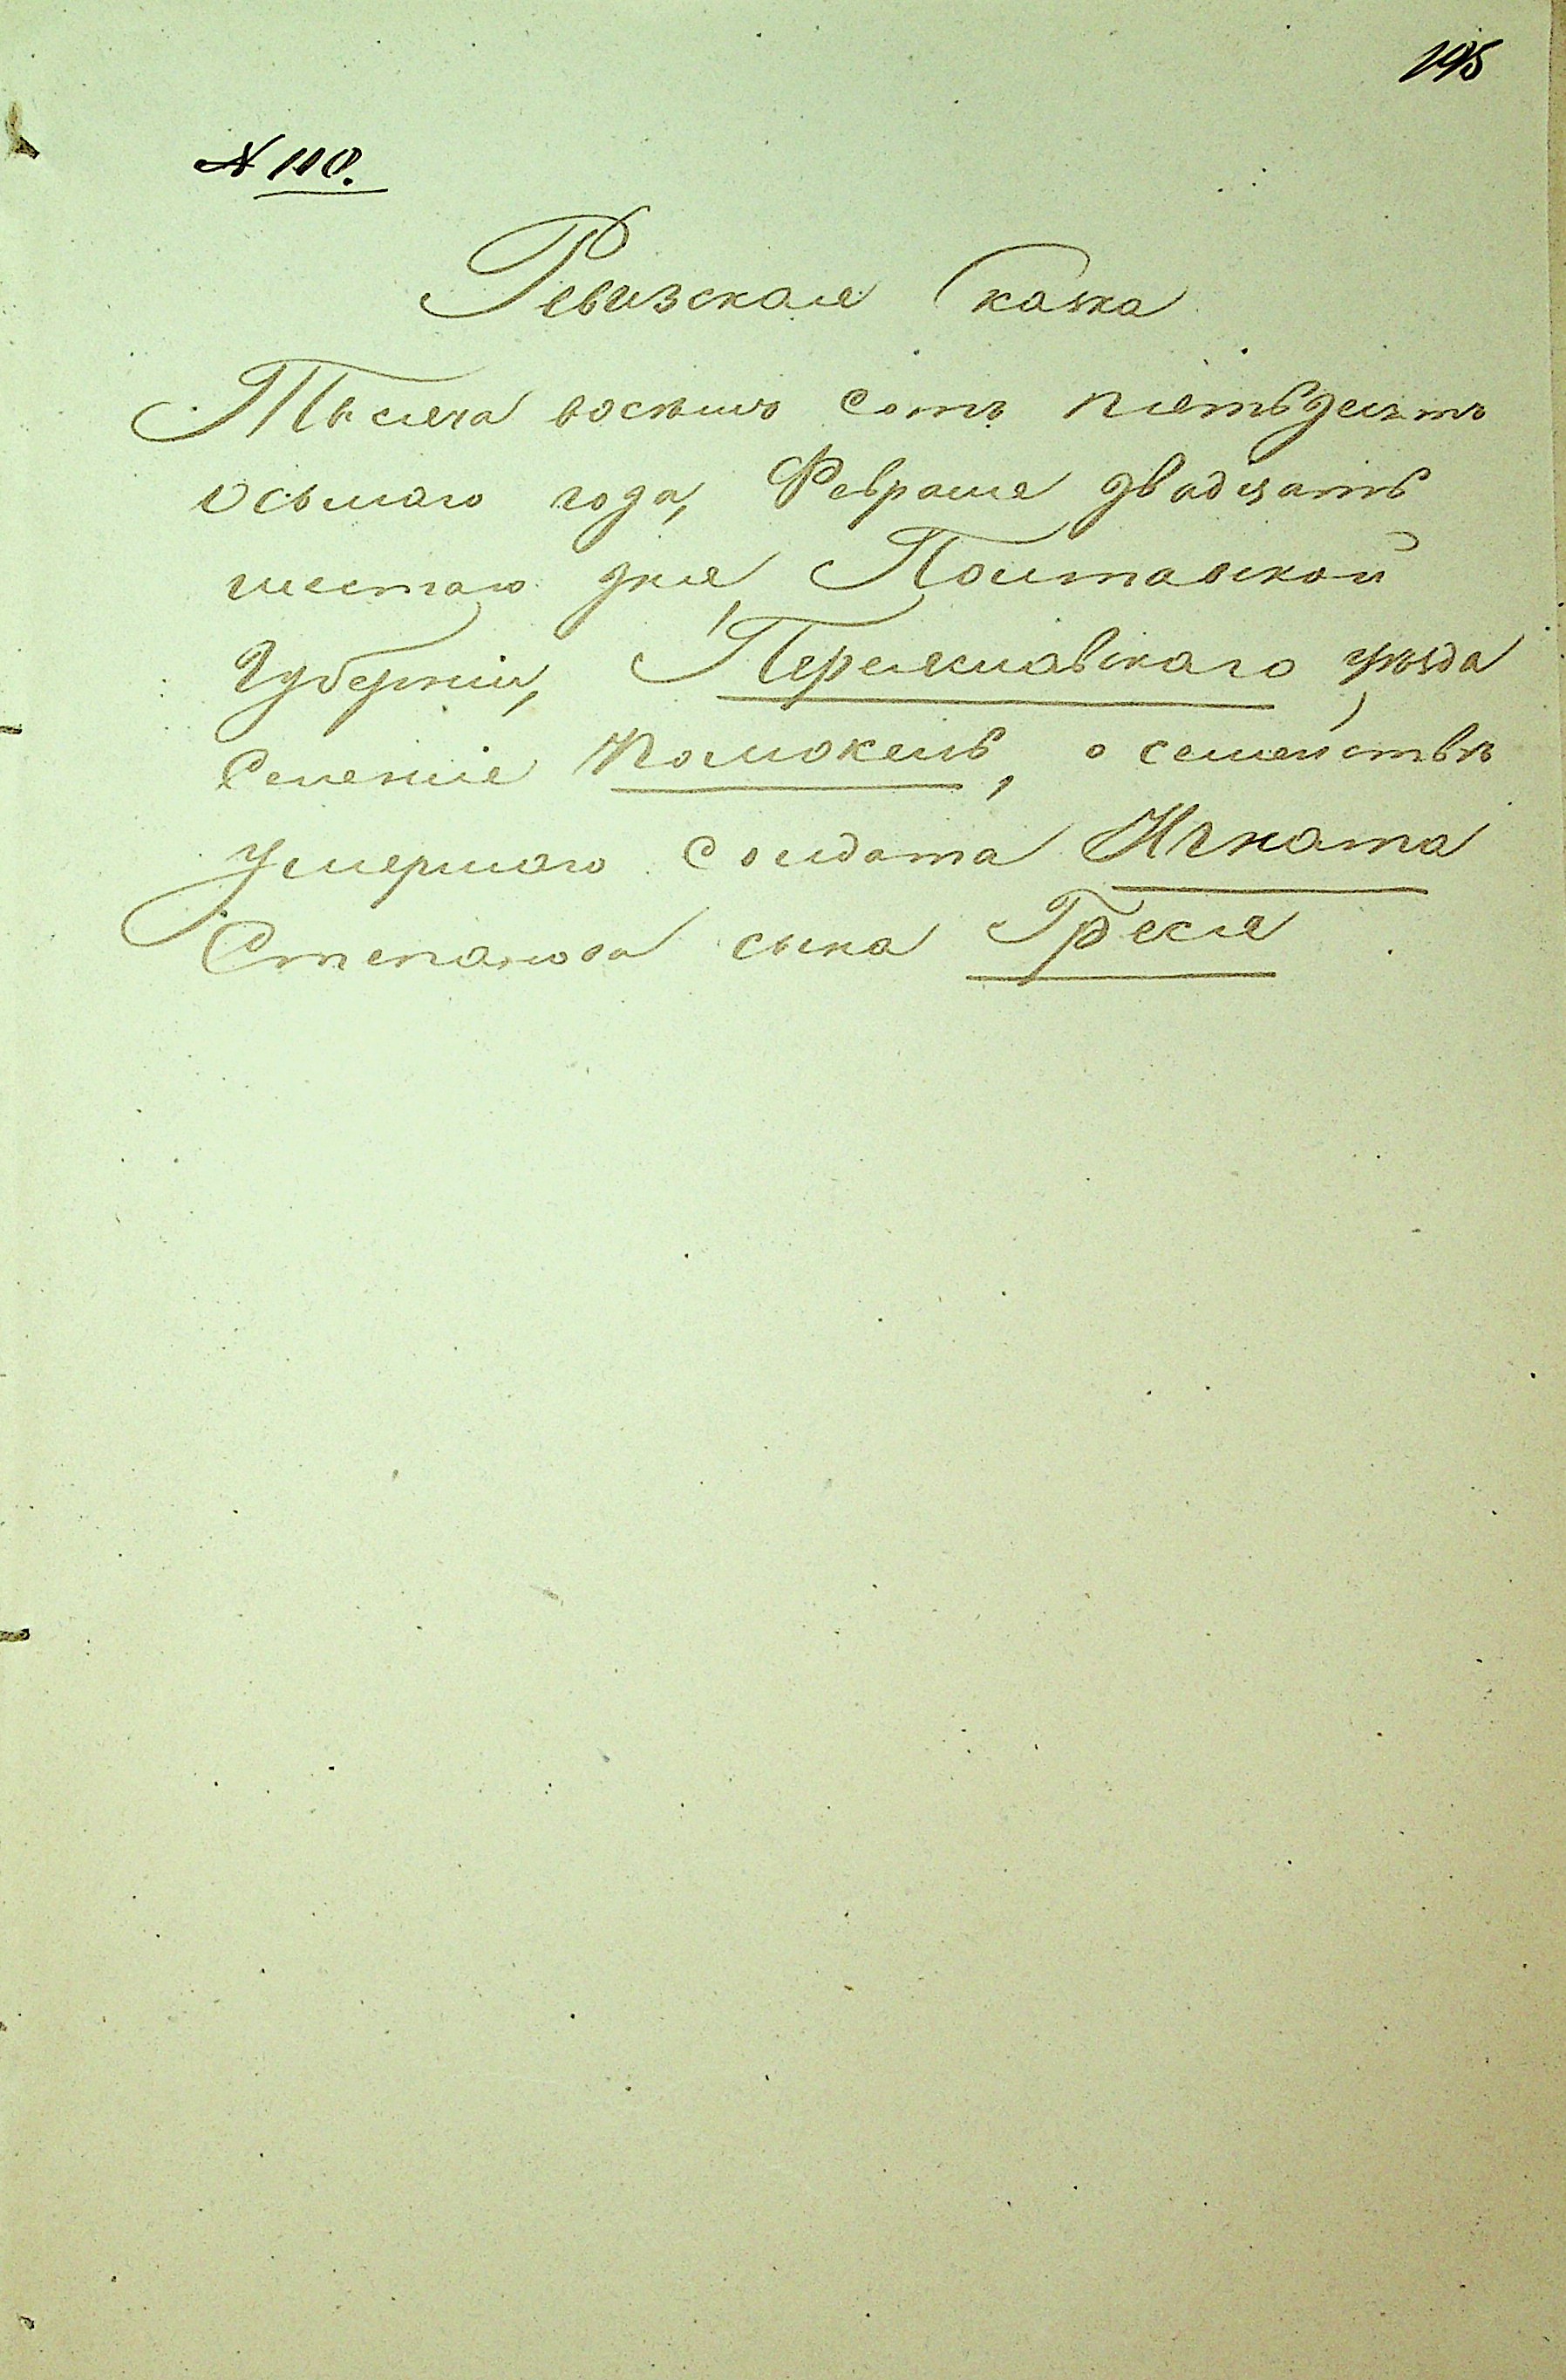 195
№ 118.
Ревизская Сказка
Тысяча восѣмъ сотъ пятьдесятъ
осьмаго года, Февраля двадцать
шестаго дня, Полтавской
Губерніи, Переяславскаго уѣзда,
Селенія Помоклей, о семействѣ
умершаго солдата Игната
Степанова сына Греся